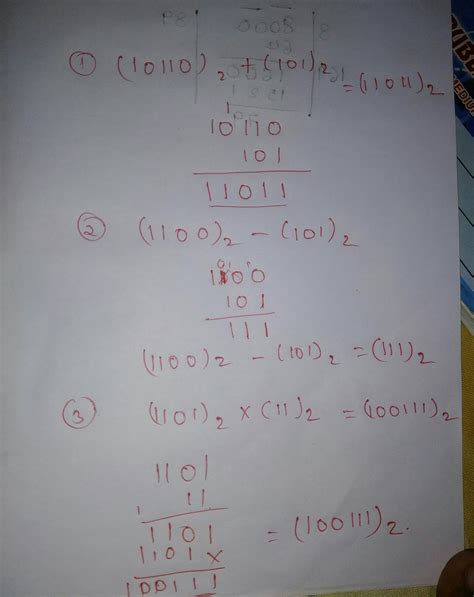 ① (10110)₂ + (101)₂ = (11011)₂
1
10110
101
11011
② (1100)₂ - (101)₂
1100
101
111
(1100)₂ - (101)₂ = (111)₂
③ (1101)₂ × (11)₂ = (100111)₂
1101
11
1
1101
1101×
100111 = (100111)₂.